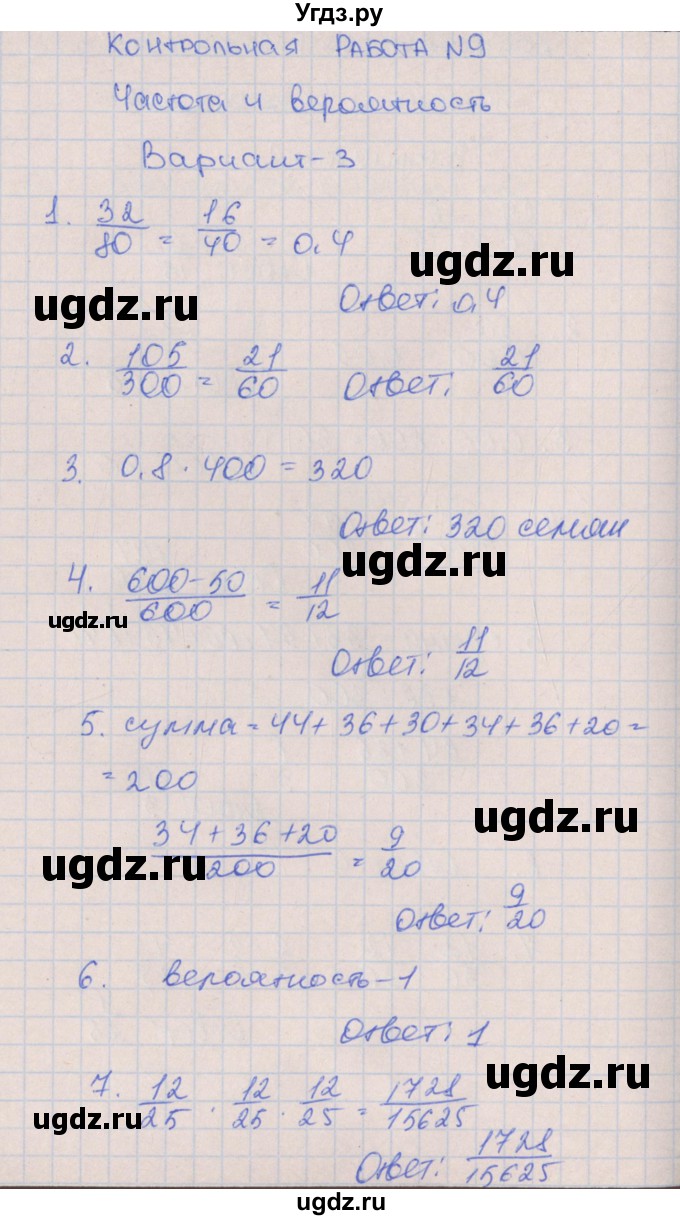 Угдз.ру
КОНТРОЛЬНАЯ РАБОТА N9
Частота и вероятность
Вариант-3
1. 32/80 = 16/40 = 0,4
ugdz.ru
ugdz.ru
Ответ: 0,4
2. 105/300 = 21/60 Ответ: 21/60
3. 0.8 · 400 = 320
Ответ: 320 семян
ugdz.ru
4. (600-50)/600 = 11/12
ugdz.ru
Ответ: 11/12
5. сумма = 44+36+30+34+36+20=
= 200
ugdz.ru
(34+36+20)/200 = 9/20
ugdz.ru
Ответ: 9/20
6. вероятность-1
Ответ: 1
ugdz.ru
7. 12/25 · 12/25 · 12/25 = 1728/15625
ugdz.ru
Ответ: 1728/15625
ugdz.ru